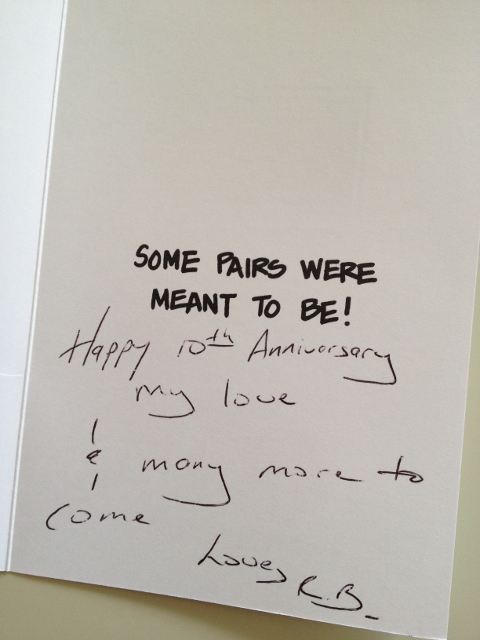 SOME PAIRS WERE
MEANT TO BE!
Happy 10th Anniversary
my love
& many more to
come
Love,
R.B.